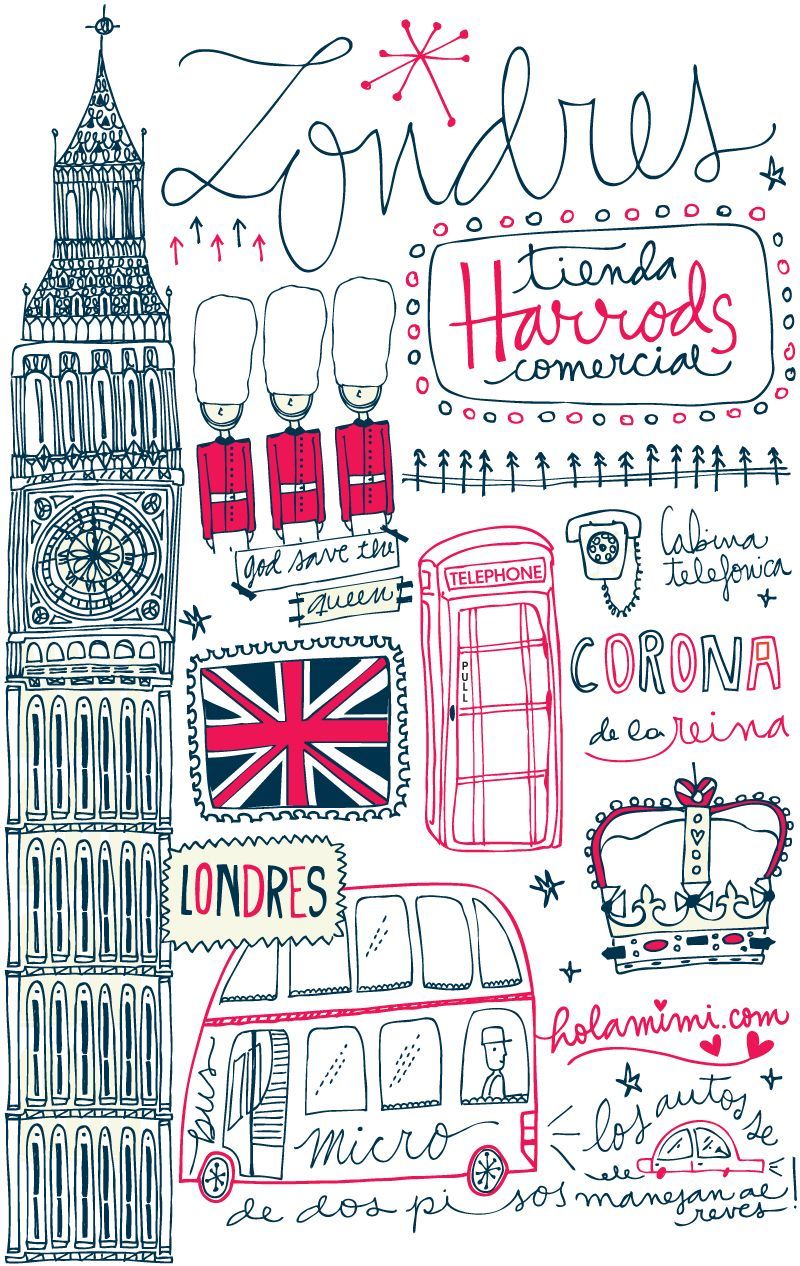 Londres
tienda
Harrods
comercial
god save the
queen
TELEPHONE
PULL
Cabina
telefonica
CORONA
de la reina
LONDRES
holamimi.com
bus
micro
de dos pisos
los autos se
manejan al
reves!